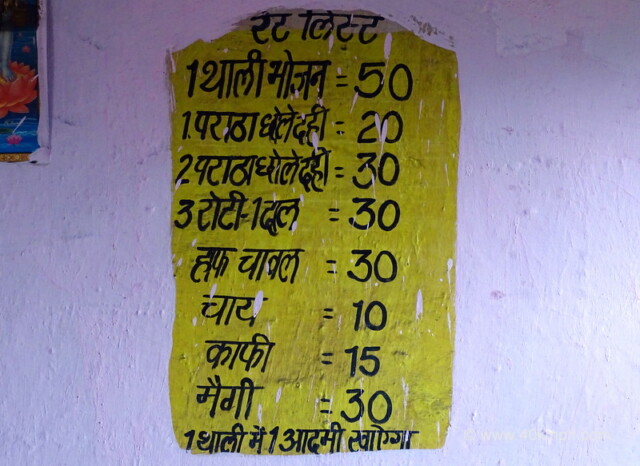 रेट लिस्ट
1 थाली भोजन = 50
1 पराठा छोले दही = 20
2 पराठा छोले दही = 30
3 रोटी-1 दाल = 30
हाफ चावल = 30
चाय = 10
काफी = 15
मैगी = 30
1 थाली में 1 आदमी खाऐगा